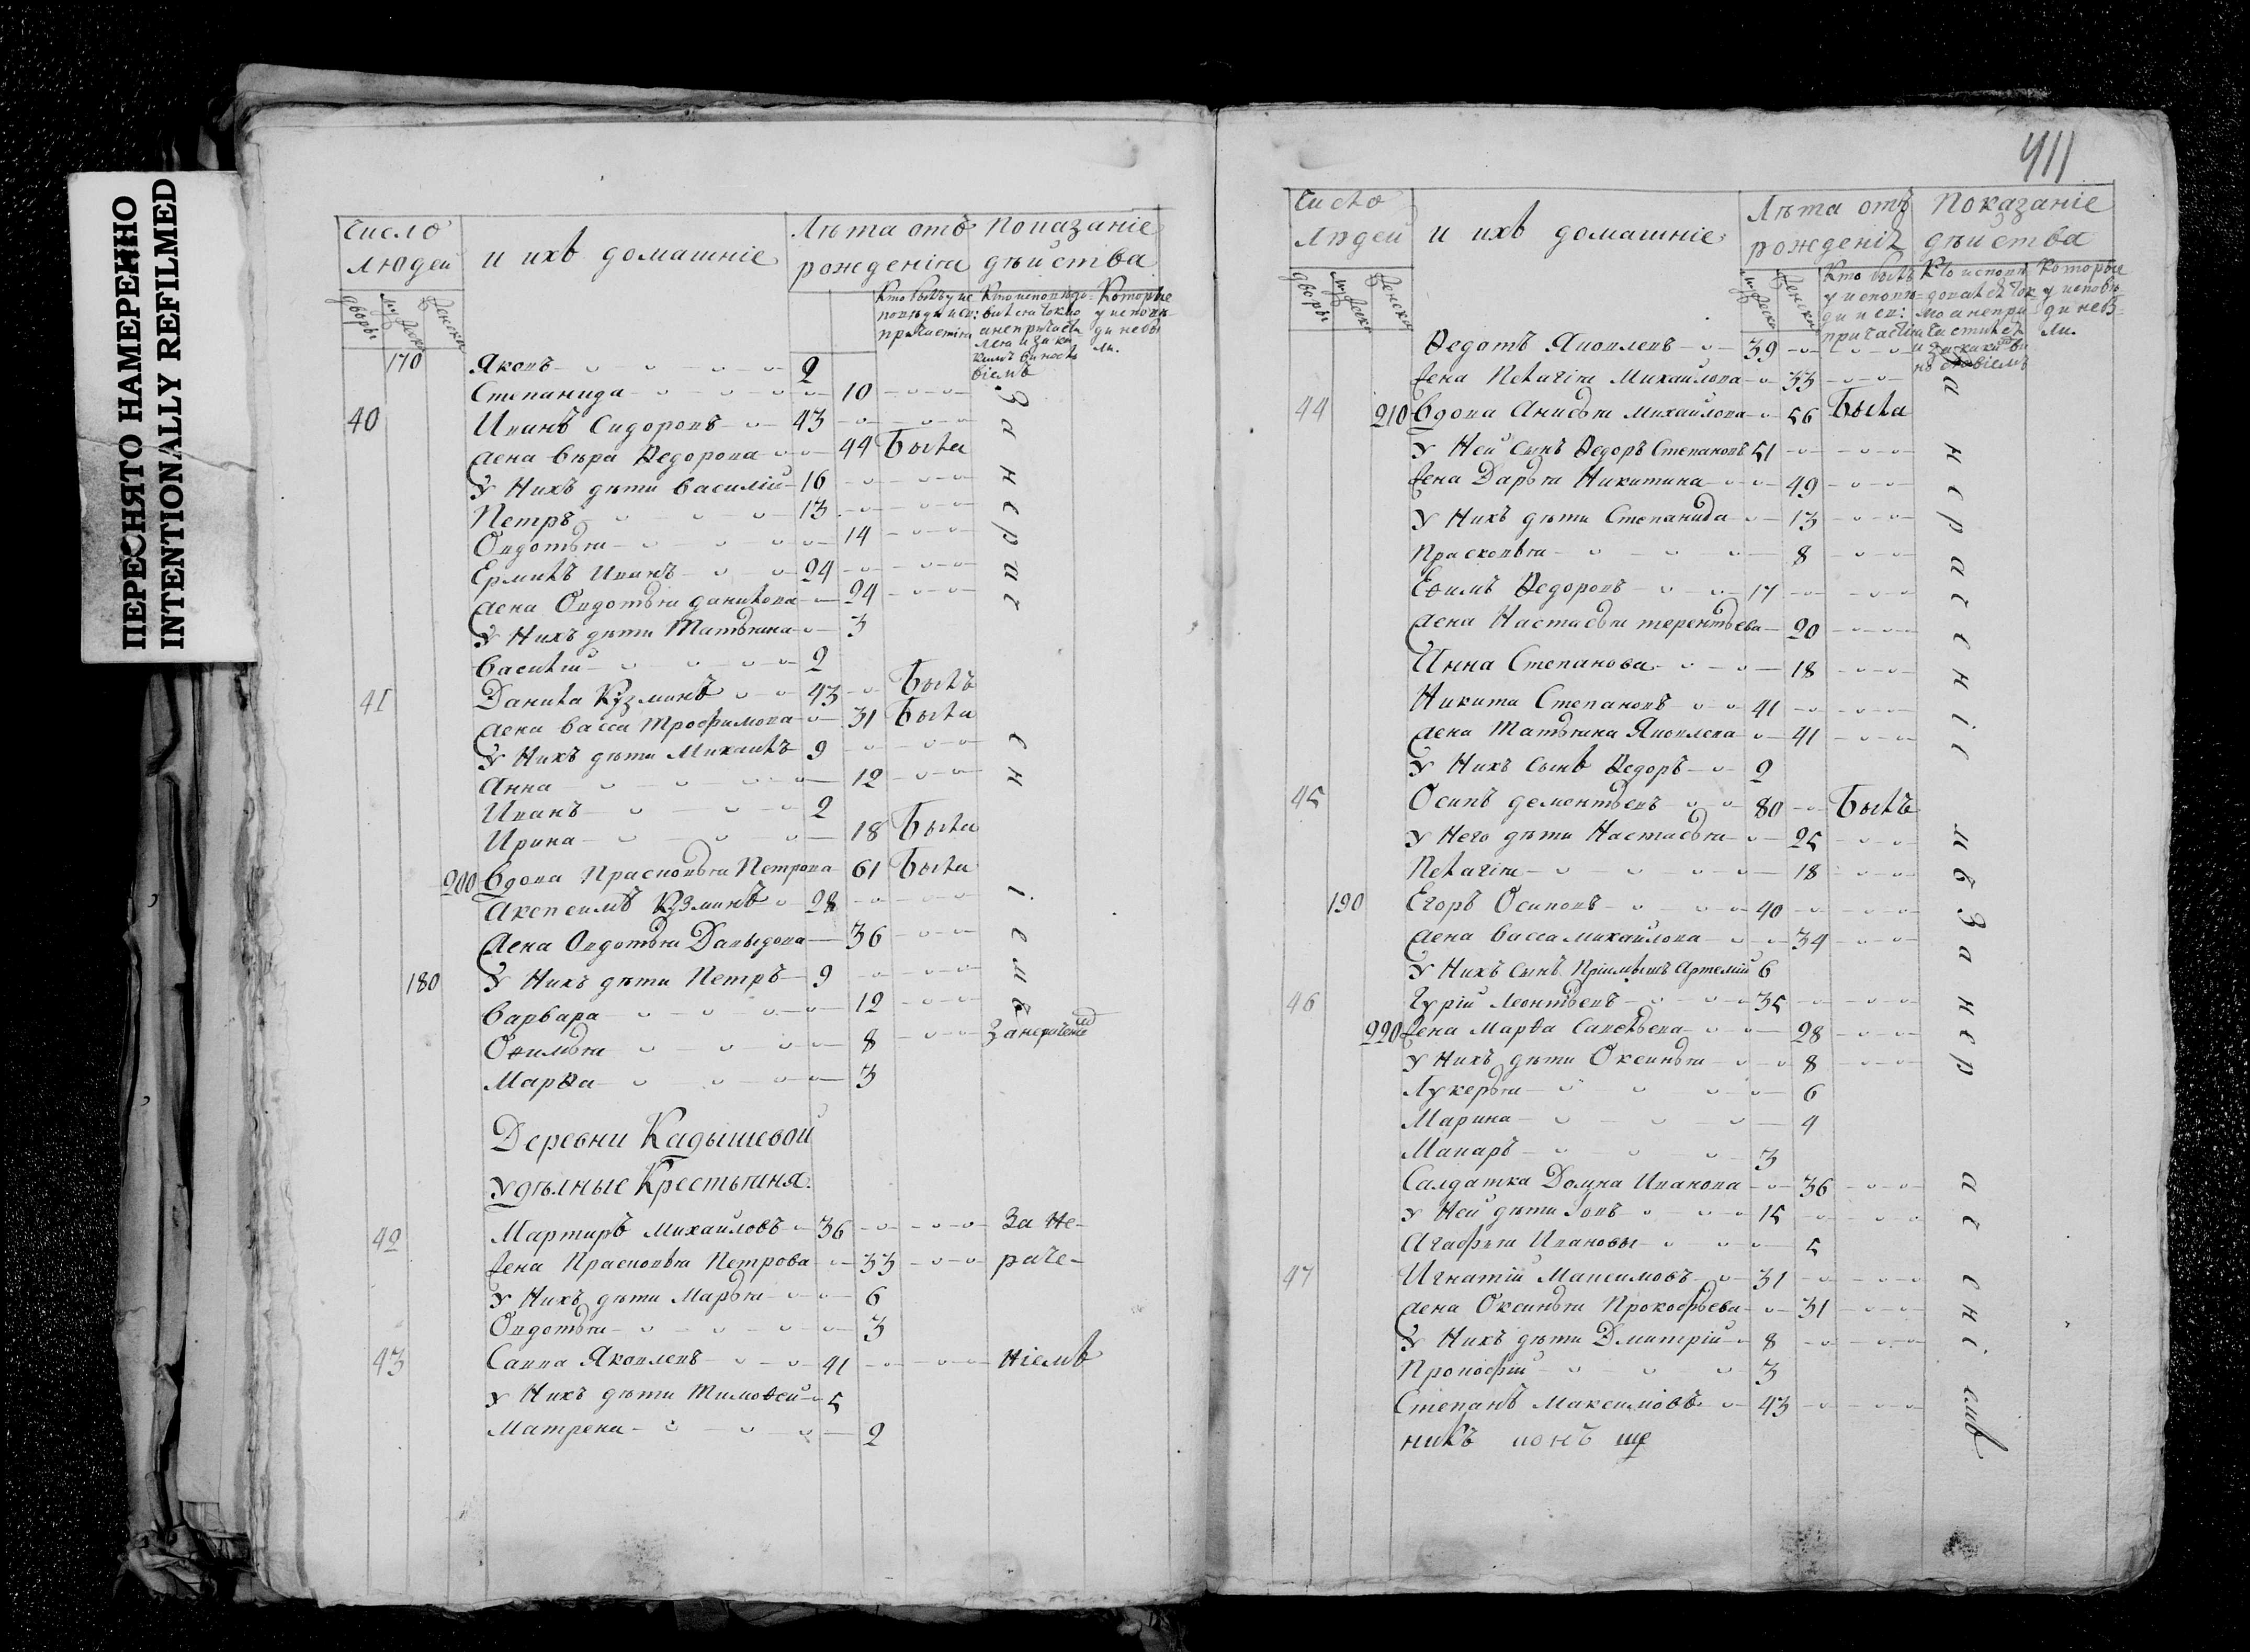 ПЕРЕСНЯТО НАМЕРЕННО
INTENTIONALLY REFILMED
Число людей и ихъ домашніе Лѣта отъ рожденія Показаніе дѣйства
дворы мужеска женска
Кто былъ у исповѣди и св: причастія
Кто исповѣдовался токмо а не причастился и за какимъ винословіемъ
Которые у исповѣди не были.
170 Яковъ 2
Степанида 10
40 Иванъ Сидоровъ 43
жена Вѣра Ѳедорова 44 Была
У Нихъ дѣти Василій 16
Петръ 13
Овдотья 14
Ермилъ Ивановъ 24
жена Овдотья Данилова 24
У Нихъ дѣти Татьяна 3
Василій 2
41 Данила Кузминъ 43 Былъ
жена Васса Трофимова 31 Была
У Нихъ дѣти Михаилъ 9
Анна 12
Иванъ 2
Ирина 18 Была
200 Вдова Прасковья Петрова 61 Была
Аксенъ Кузминъ 28
жена Овдотья Давыдова 36
180 У Нихъ дѣти Петръ 9
Варвара 12
Офимья 8
Марѳа 3
За нерачениемъ
Деревни Кадышевой
Удѣлные Крестьяня.
42 Мартиръ Михайловъ 36 За Не-
жена Прасковья Петрова 33 раче-
У Нихъ дѣти Марья 6
Овдотья 3
43 Савва Яковлевъ 41 ніемъ
У Нихъ дѣти Тимоѳей 5
Матрена 2
411
Число Людей и ихъ домашніе Лѣта отъ рожденія Показаніе дѣйства
дворы мужеска женска
мужеска женска
Кто былъ у исповѣди и св: причастія
Кто исповѣдался токмо а не причастился и за какимъ виносло­віемъ
Которые у исповѣди не были.
Ѳедотъ Яковлевъ 39
жена Пелагія Михайлова 33
44 210 Вдова Анисья Михайлова 56 Была
У Ней Сынъ Ѳедоръ Степановъ 51
жена Дарья Никитина 49
У Нихъ дѣти Степанида 13
Прасковья 8
Ефимъ Ѳедоровъ 17
жена Настасья Терентьева 20
Анна Степанова 18
Никита Степановъ 41
жена Татьяна Яковлева 41
У Нихъ Сынъ Ѳедоръ 2
45 Осипъ Дементьевъ 80 Былъ
У Него дѣти Настасья 25
Пелагія 18
190 Егоръ Осиповъ 40
жена Васса Михайлова 34
У Нихъ Сынъ Пріимышъ Артемій 6
46 Гурій Леонтьевъ 35
220 жена Марѳа Савельева 28
У Нихъ дѣти Оксинья 8
Лукерья 6
Марина 4
Макаръ 3
Салдатка Домна Иванова 36
У Ней дѣти Іовъ 15
Агафья Ивановы 5
47 Игнатій Максимовъ 31
жена Оксинья Прокофьева 31
У Нихъ дѣти Дмитрій 8
Прокофій 3
Степанъ Максимовъ 43
За нерачениемъ За нерачениемъ